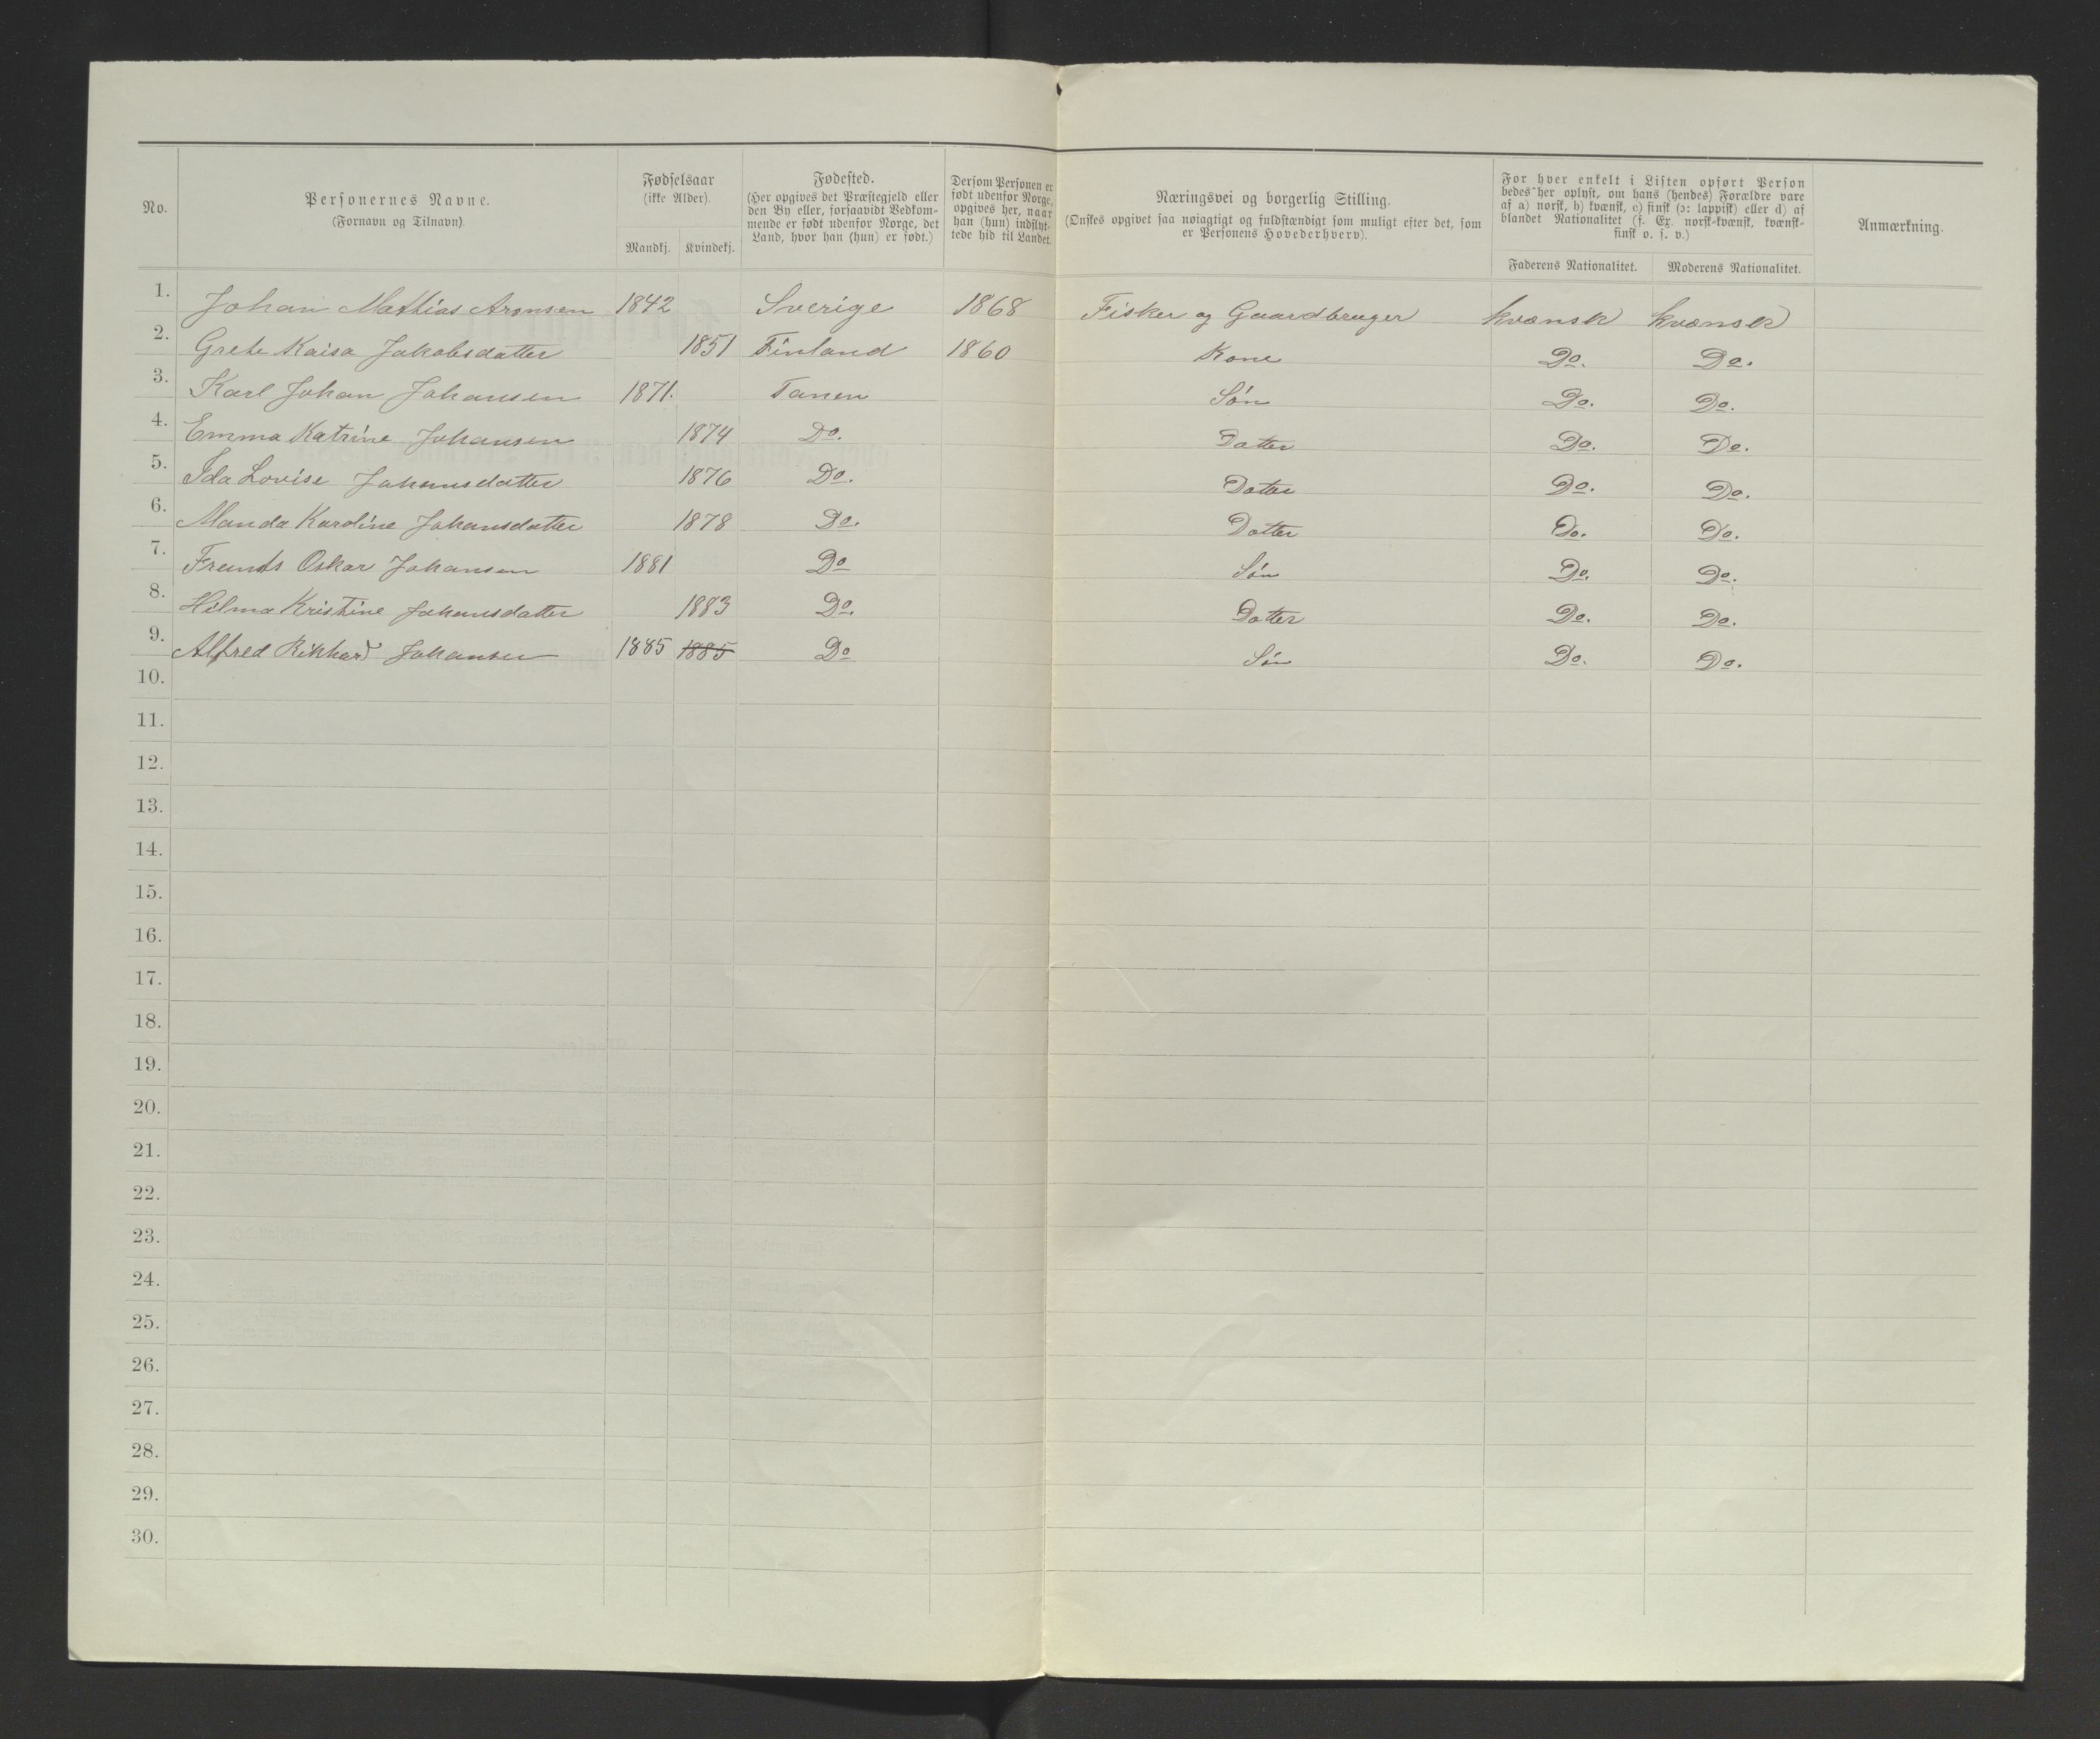 No.
Personernes Navne.
(Fornavn og Tilnavn)
Fødselsaar
(ikke Alder).
Mandkj. Kvindekj.
Fødested.
(Her opgives det Præstegjeld eller
den By eller, forsaavidt Vedkom-
mende er født udenfor Norge, det
Land, hvor han (hun) er født.)
Dersom Personen er
født udenfor Norge,
opgives her, naar
han (hun) indflyt-
tede hid til Landet.
Næringsvei og borgerlig Stilling.
(Ønskes opgivet saa nøiagtigt og fuldstændigt som muligt efter det, som
er Personens Hovederhverv).
For hver enkelt i Listen opført Person
bedes her oplyst, om hans (hendes) Forældre vare
af a) norsk, b) kvænsk, c) finsk (ɔ: lappisk) eller d) af
blandet Nationalitet (f. Ex. norsk-kvænsk, kvænsk-
finsk o. s. v.)
Faderens Nationalitet. Moderens Nationalitet.
Anmærkning.
1. Johan Mathias Aronsen 1842 Sverige 1868 Fisker og Gaardbruger kvænsk kvænsk
2. Grete Kaisa Jakobsdatter 1851 Finland 1860 Kone Do. Do.
3. Karl Johan Johansen 1871. Tanen Søn Do. Do.
4. Emma Katrine Johansen 1874 Do. Datter Do. Do.
5. Ida Lovise Johansdatter 1876 Do. Datter Do. Do.
6. Manda Karoline Johansdatter 1878 Do. Datter Do. Do.
7. Oskar Johansen 1881 Do Søn Do. Do.
8. Hilma Kristine Johansdatter 1883 Do. Datter Do. Do.
9. Alfred Rikhard Johansen 1885 1885 Do Søn Do. Do.
10.
11.
12.
13.
14.
15.
16.
17.
18.
19.
20.
21.
22.
23.
24.
25.
26.
27.
28.
29.
30.